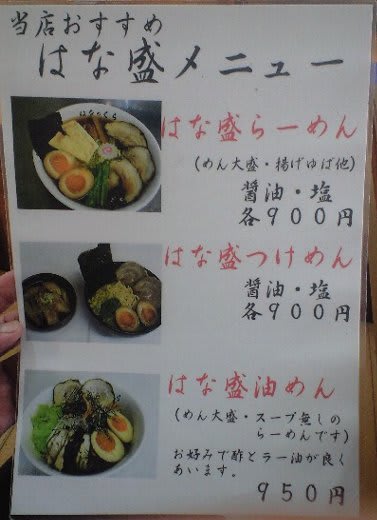 当店おすすめ
はな盛メニュー
はな盛らーめん
(めん大盛・揚げゆば他)
醤油・塩
各900円
はな盛つけめん
醤油・塩
各900円
はな盛油めん
(めん大盛・スープ無しの
らーめんです)
お好みで酢とラー油が良く
あいます。
950円